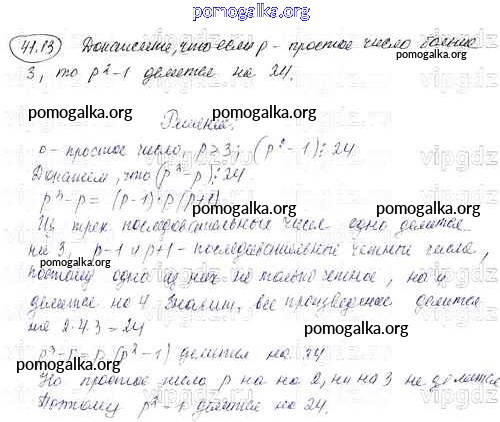 pomogalka.org
41.13) Докажите, что если p - простое число больше
3, то p²-1 делится на 24.
pomogalka.org pomogalka.org
Решение.
p - простое число, p>3; (p²-1)⋮24
Докажем, что (p³-p)⋮24
pomogalka.org pomogalka.org
p³-p = (p-1)·p(p+1)
Из трех последовательных чисел одно делится
на 3, p-1 и p+1 - последовательные четные числа,
pomogalka.org pomogalka.org
поэтому одно из них не только четное, но и
делится на 4. Значит, все произведение делится
на 2·4·3=24
pomogalka.org
p³-p=p(p²-1) делится на 24
Но простое число p ни на 2, ни на 3 не делится.
Поэтому p²-1 делится на 24.
pomogalka.org